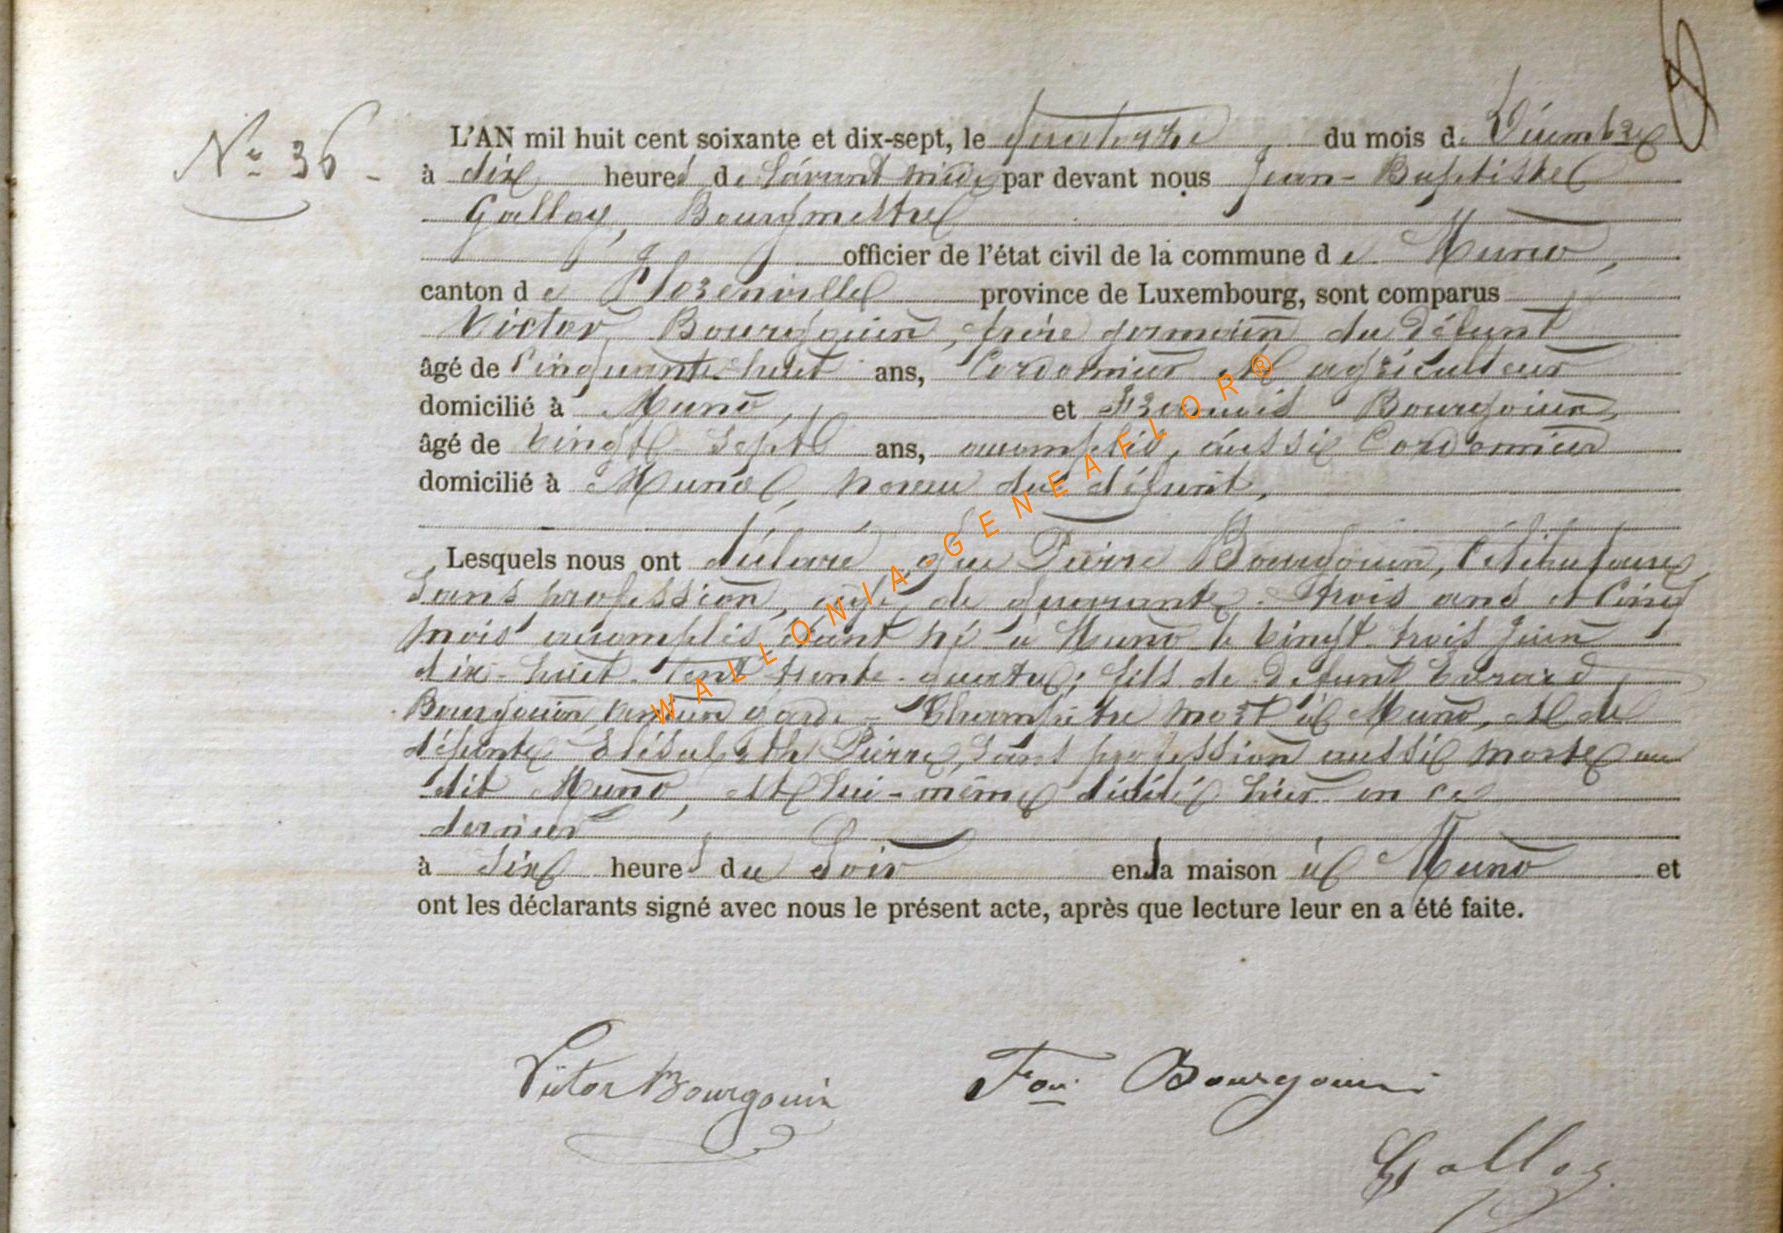 Nº 36 -
L'AN mil huit cent soixante et dix-sept, le quatorze du mois de Décembre
à dix heures de l'avant midi par devant nous Jean-Baptiste
Galloy, Bourgmestre
officier de l'état civil de la commune de Muno,
canton de Florenville province de Luxembourg, sont comparus
Victor Bourgouin, frère germain du défunt
âgé de Cinquante-huit ans, Cordonnier et agriculteur
domicilié à Muno, et François Bourgouin,
âgé de vingt-sept ans, accomplis, aussi Cordonnier
domicilié à Muno, neveu du défunt,
Lesquels nous ont déclaré que Pierre Bourgouin, Célibataire,
sans profession, agé de quarante-trois ans et Cinq
mois accomplis étant né à Muno le vingt-trois Juin
dix-huit-Cent trente-quatre; fils de défunt Evrard
Bourgouin, ancien garde-Champêtre mort à Muno, et de
défunte Elisabeth Pierre, sans profession aussi morte au
dit Muno, et lui-même décédé hier en ce
dernier
à six heures du soir en la maison à Muno et
ont les déclarants signé avec nous le présent acte, après que lecture leur en a été faite.
Victor Bourgouin Fois Bourgouin
Galloy
WALLONIA-GENEAFLOR®